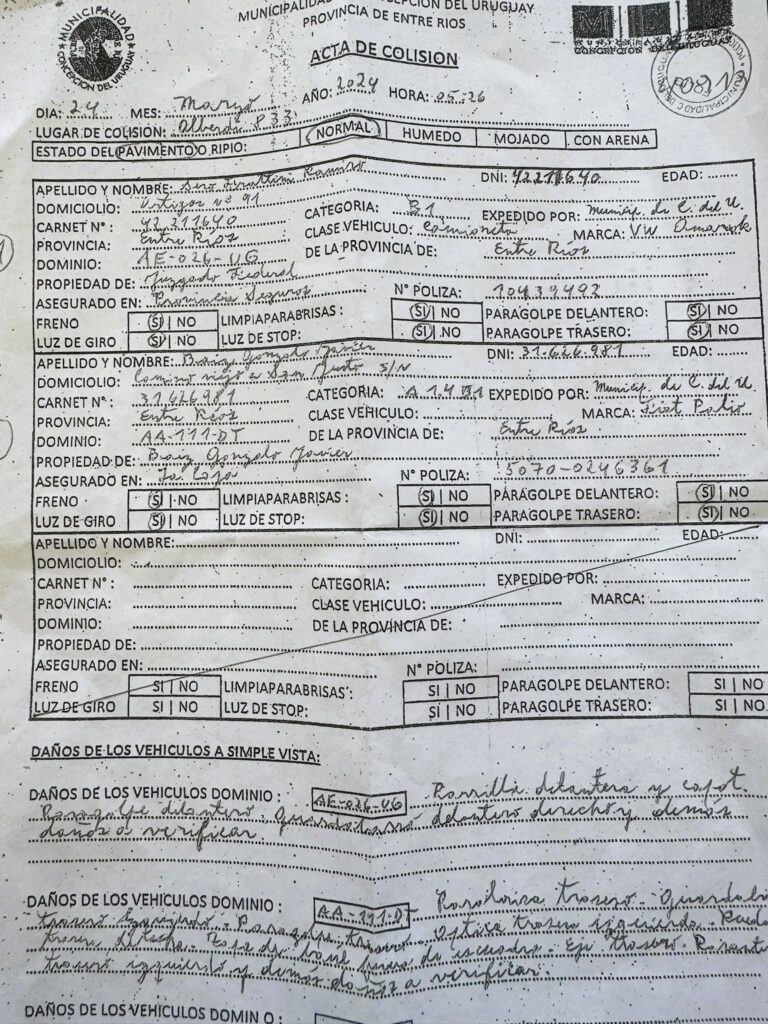 MUNICIPALIDAD CONCEPCION DEL URUGUAY
PROVINCIA DE ENTRE RIOS
MUNICIPALIDAD
CONCEPCION DEL URUGUAY
ACTA DE COLISION
DIA: 24 MES: Marzo AÑO: 2024 HORA: 05:26
LUGAR DE COLISIÓN: Alberdi 833
ESTADO DEL PAVIMENTO O RIPIO: NORMAL HUMEDO MOJADO CON ARENA
APELLIDO Y NOMBRE: Ramiro DNI: 42211640 EDAD:
DOMICILIO: Urtizas nº 91
CARNET N°: 42.211640 CATEGORIA: B1 EXPEDIDO POR: Municip. de C. del U.
PROVINCIA: Entre Ríos CLASE VEHICULO: Camioneta MARCA: VW Amarok
DOMINIO: AE-026-UG DE LA PROVINCIA DE: Entre Ríos
PROPIEDAD DE: Juzgado Federal
ASEGURADO EN: Provincia Seguros N° POLIZA: 10439492
FRENO SI | NO LIMPIAPARABRISAS : SI | NO PARAGOLPE DELANTERO: SI | NO
LUZ DE GIRO SI | NO LUZ DE STOP: SI | NO PARAGOLPE TRASERO: SI | NO
APELLIDO Y NOMBRE: Baiz Gonzalo Javier DNI: 31.626.981 EDAD:
DOMICILIO: Camino viejo a San Justo S/N
CARNET N° : 31.626981 CATEGORIA: A 1.4 B1 EXPEDIDO POR: Municip. de C. del U.
PROVINCIA: Entre Ríos CLASE VEHICULO: MARCA: Fiat Palio
DOMINIO: AA-111-DT DE LA PROVINCIA DE: Entre Ríos
PROPIEDAD DE: Baiz Gonzalo Javier
ASEGURADO EN: La Caja N° POLIZA: 5070-0246361
FRENO SI | NO LIMPIAPARABRISAS : SI | NO PARAGOLPE DELANTERO: SI | NO
LUZ DE GIRO SI | NO LUZ DE STOP: SI | NO PARAGOLPE TRASERO: SI | NO
APELLIDO Y NOMBRE: DNI: EDAD:
DOMICILIO:
CARNET N° : CATEGORIA: EXPEDIDO POR:
PROVINCIA: CLASE VEHICULO: MARCA:
DOMINIO: DE LA PROVINCIA DE:
PROPIEDAD DE:
ASEGURADO EN: N° POLIZA:
FRENO SI | NO LIMPIAPARABRISAS : SI | NO PARAGOLPE DELANTERO: SI | NO
LUZ DE GIRO SI | NO LUZ DE STOP: SI | NO PARAGOLPE TRASERO: SI | NO
DAÑOS DE LOS VEHICULOS A SIMPLE VISTA:
DAÑOS DE LOS VEHICULOS DOMINIO : AE-026-UG Parrilla delantera y capot.
Paragolpe delantero. Guardabarro delantero derecho y demás
daños a verificar
DAÑOS DE LOS VEHICULOS DOMINIO : AA-111-DT trasero. Guardaba
trasero izquierdo. Paragolpe trasero. Optica trasera izquierda. Rueda
trasera derecha. fuera de escuadra. Eje trasero.
trasero izquierdo y demás daños a verificar.
DAÑOS DE LOS VEHICULOS DOMINIO :